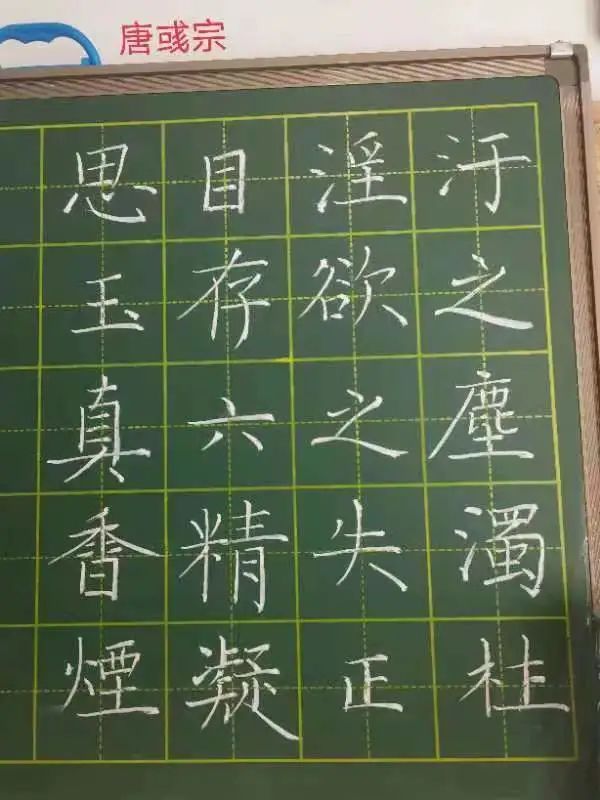 唐彧宗
汙之塵濁杜
淫欲之失正
目存六精凝
思玉真香煙